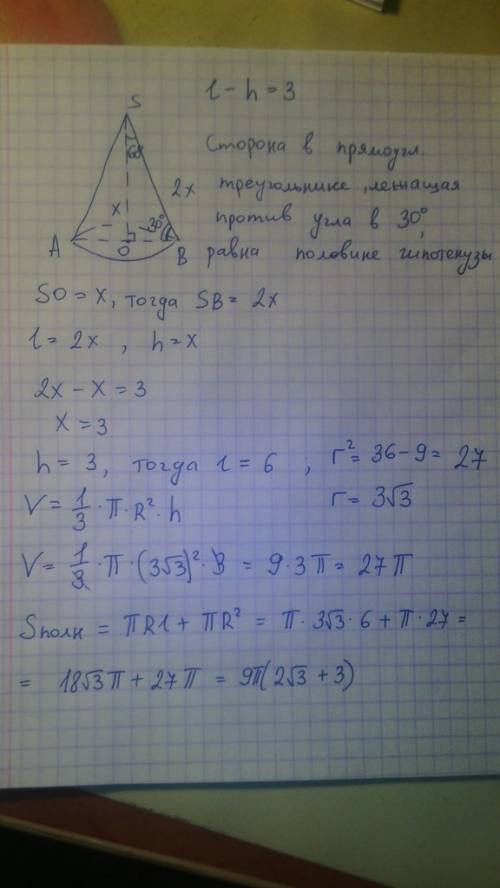 l - h = 3
S
60°
Сторона в прямоугл.
2x треугольнике, лежащая
x 30° против угла в 30°,
A O B равна половине гипотенузы
SO = x, тогда SB = 2x
l = 2x , h = x
2x - x = 3
x = 3
h = 3, тогда l = 6 ; r² = 36 - 9 = 27
V = 1/3 · π · R² · h r = 3√3
V = 1/3 · π · (3√3)² · 3 = 9 · 3π = 27π
Sполн = πRl + πR² = π · 3√3 · 6 + π · 27 =
= 18√3π + 27π = 9π(2√3 + 3)